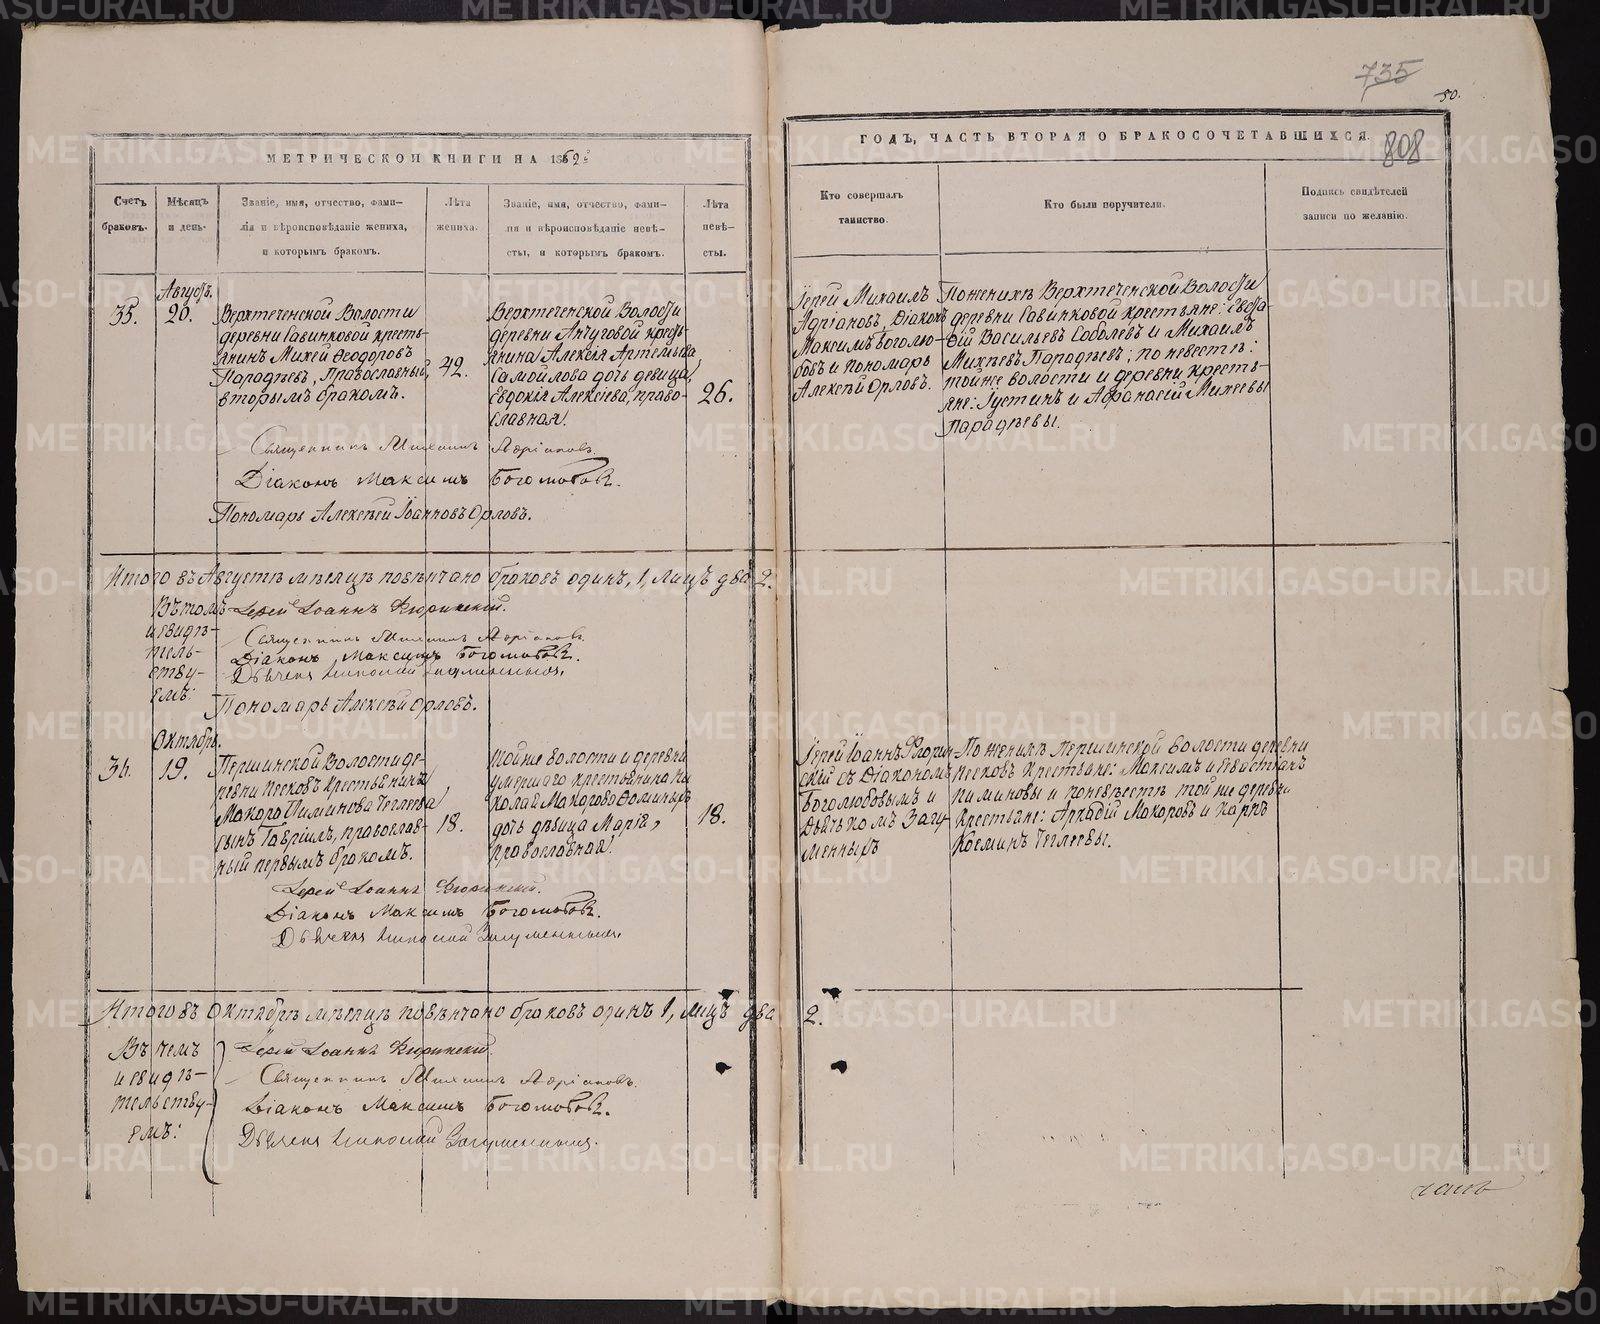 735
50.
808
МЕТРИЧЕСКОЙ КНИГИ НА 1869
ГОДЪ, ЧАСТЬ ВТОРАЯ О БРАКОСОЧЕТАВШИХСЯ.
Счетъ браковъ.
Мѣсяцъ и день.
Званіе, имя, отчество, фами-
лія и вѣроисповѣданіе жениха,
и которымъ бракомъ.
Лѣта жениха.
Званіе, имя, отчество, фами-
лія и вѣроисповѣданіе невѣ-
сты, и которымъ бракомъ.
Лѣта невѣ-
сты.
Кто совершалъ
таинство.
Кто были поручители.
Подпись свидѣтелей
записи по желанію.
35.
Августъ.
20.
Верхтеченской Волости
деревни Савинковой кресть-
янинъ Михей Ѳеодоровъ
Парадѣевъ, Православный,
вторымъ бракомъ.
42.
Верхтеченской Волости
деревни Анчуговой кресть-
янина Алексія Артемьева
Самойлова дочь девица,
Евдокія Алексіева, право-
славная.
26.
Іерей Михаилъ
Адріановъ, Діаконъ
Максимъ Боголю-
бовъ и пономарь
Алексѣй Орловъ.
По женихѣ Верхтеченской Волости
деревни Савинковой крестьяне: Евста-
фій Васильевъ Соболевъ и Михаилъ
Михѣевъ Парадѣевъ; по невестѣ:
той же волости и деревни кресть-
яне: Іустинъ и Афанасій Михеевы
Парадѣевы.
Священникъ Михаилъ Адріановъ.
Діаконъ Максимъ Боголюбовъ.
Пономарь Алексѣй Іоанновъ Орловъ.
Итого въ Августѣ мѣсяцѣ повѣнчано браковъ одинъ, 1, лицъ два 2.
Въ томъ
и свидѣ-
тель-
ству-
емъ:
Іерей Іоаннъ Флоринскій.
Священникъ Михаилъ Адріановъ.
Діаконъ Максимъ Боголюбовъ.
Дьячекъ Николай Загуменныхъ.
Пономарь Алексѣй Орловъ.
36.
Октябрь.
19.
Першинской Волости де-
ревни Песковъ Крестьянина
Макара Пиминова Теглеева
сынъ Гавріилъ, православ-
ный первымъ бракомъ.
18.
Той же волости и деревни
умершаго крестьянина Ни-
колая Макарова Фоминыхъ
дочь дѣвица Марія,
православная.
18.
Іерей Іоаннъ Флорин-
скій съ Діакономъ
Боголюбовымъ и
Дьячкомъ Загу-
менныхъ
По женихѣ Першинской волости деревни
Песковъ Крестьяне: Максимъ и Севастьянъ
Пиминовы и по невѣстѣ той же деревни
Крестьяне: Аркадій Макаровъ и Карпъ
Косминъ Теглеевы.
Іерей Іоаннъ Флоринскій.
Діаконъ Максимъ Боголюбовъ.
Дьячекъ Николай Загуменныхъ.
Итого въ Октябрѣ мѣсяцѣ повѣнчано браковъ одинъ 1, лицъ два 2.
Въ чемъ
и свидѣ-
тельству-
емъ:
Іерей Іоаннъ Флоринскій.
Священникъ Михаилъ Адріановъ.
Діаконъ Максимъ Боголюбовъ.
Дьячекъ Николай Загуменныхъ.
METRIKI.GASO-URAL.RU